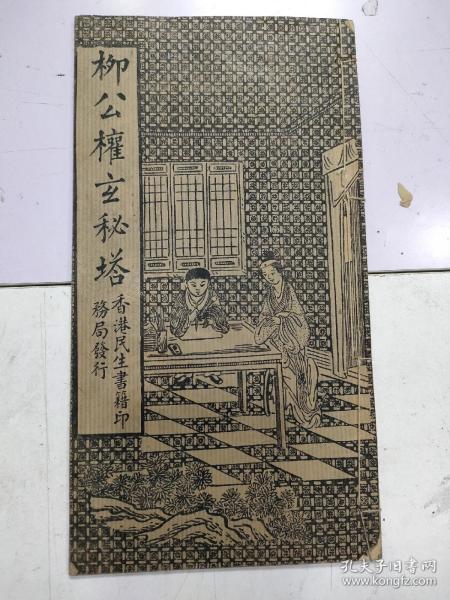 柳公權玄秘塔
香港民生書籍印
務局發行
孔夫子旧书网
www.kongfz.com